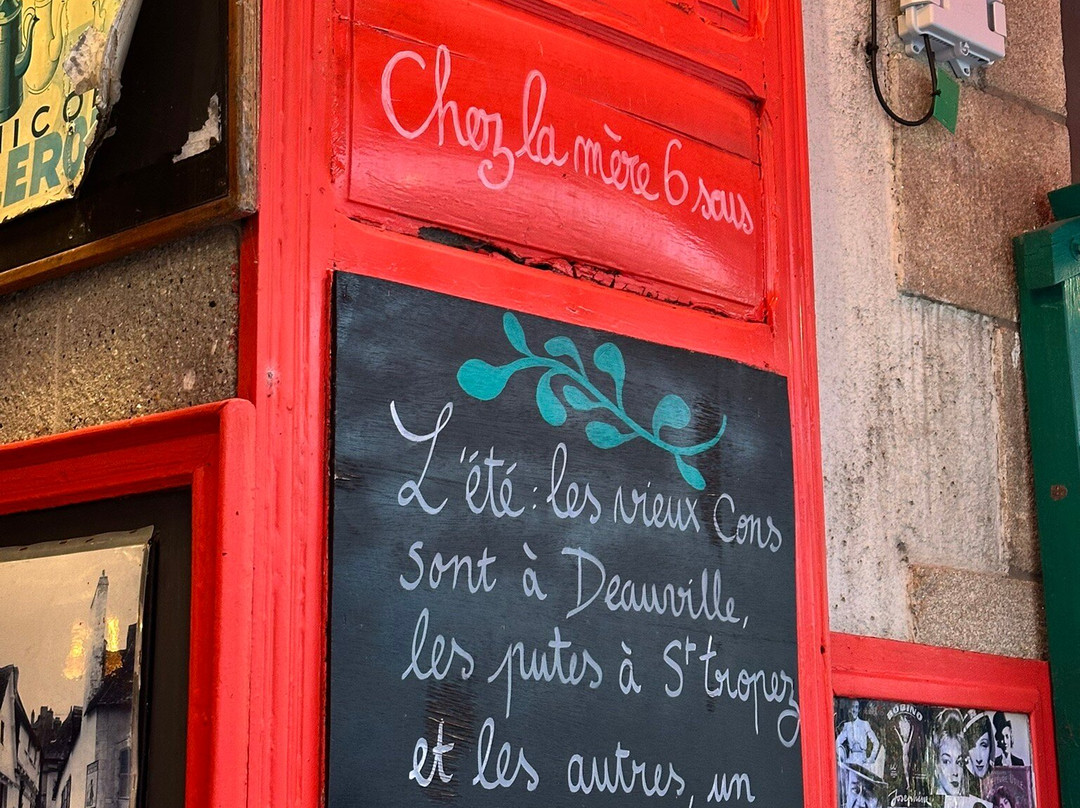 Chez la mère 6 sous
L'été : les vieux Cons
sont à Deauville,
les putes à St tropez
et les autres, un
BOBINO
Joséphine